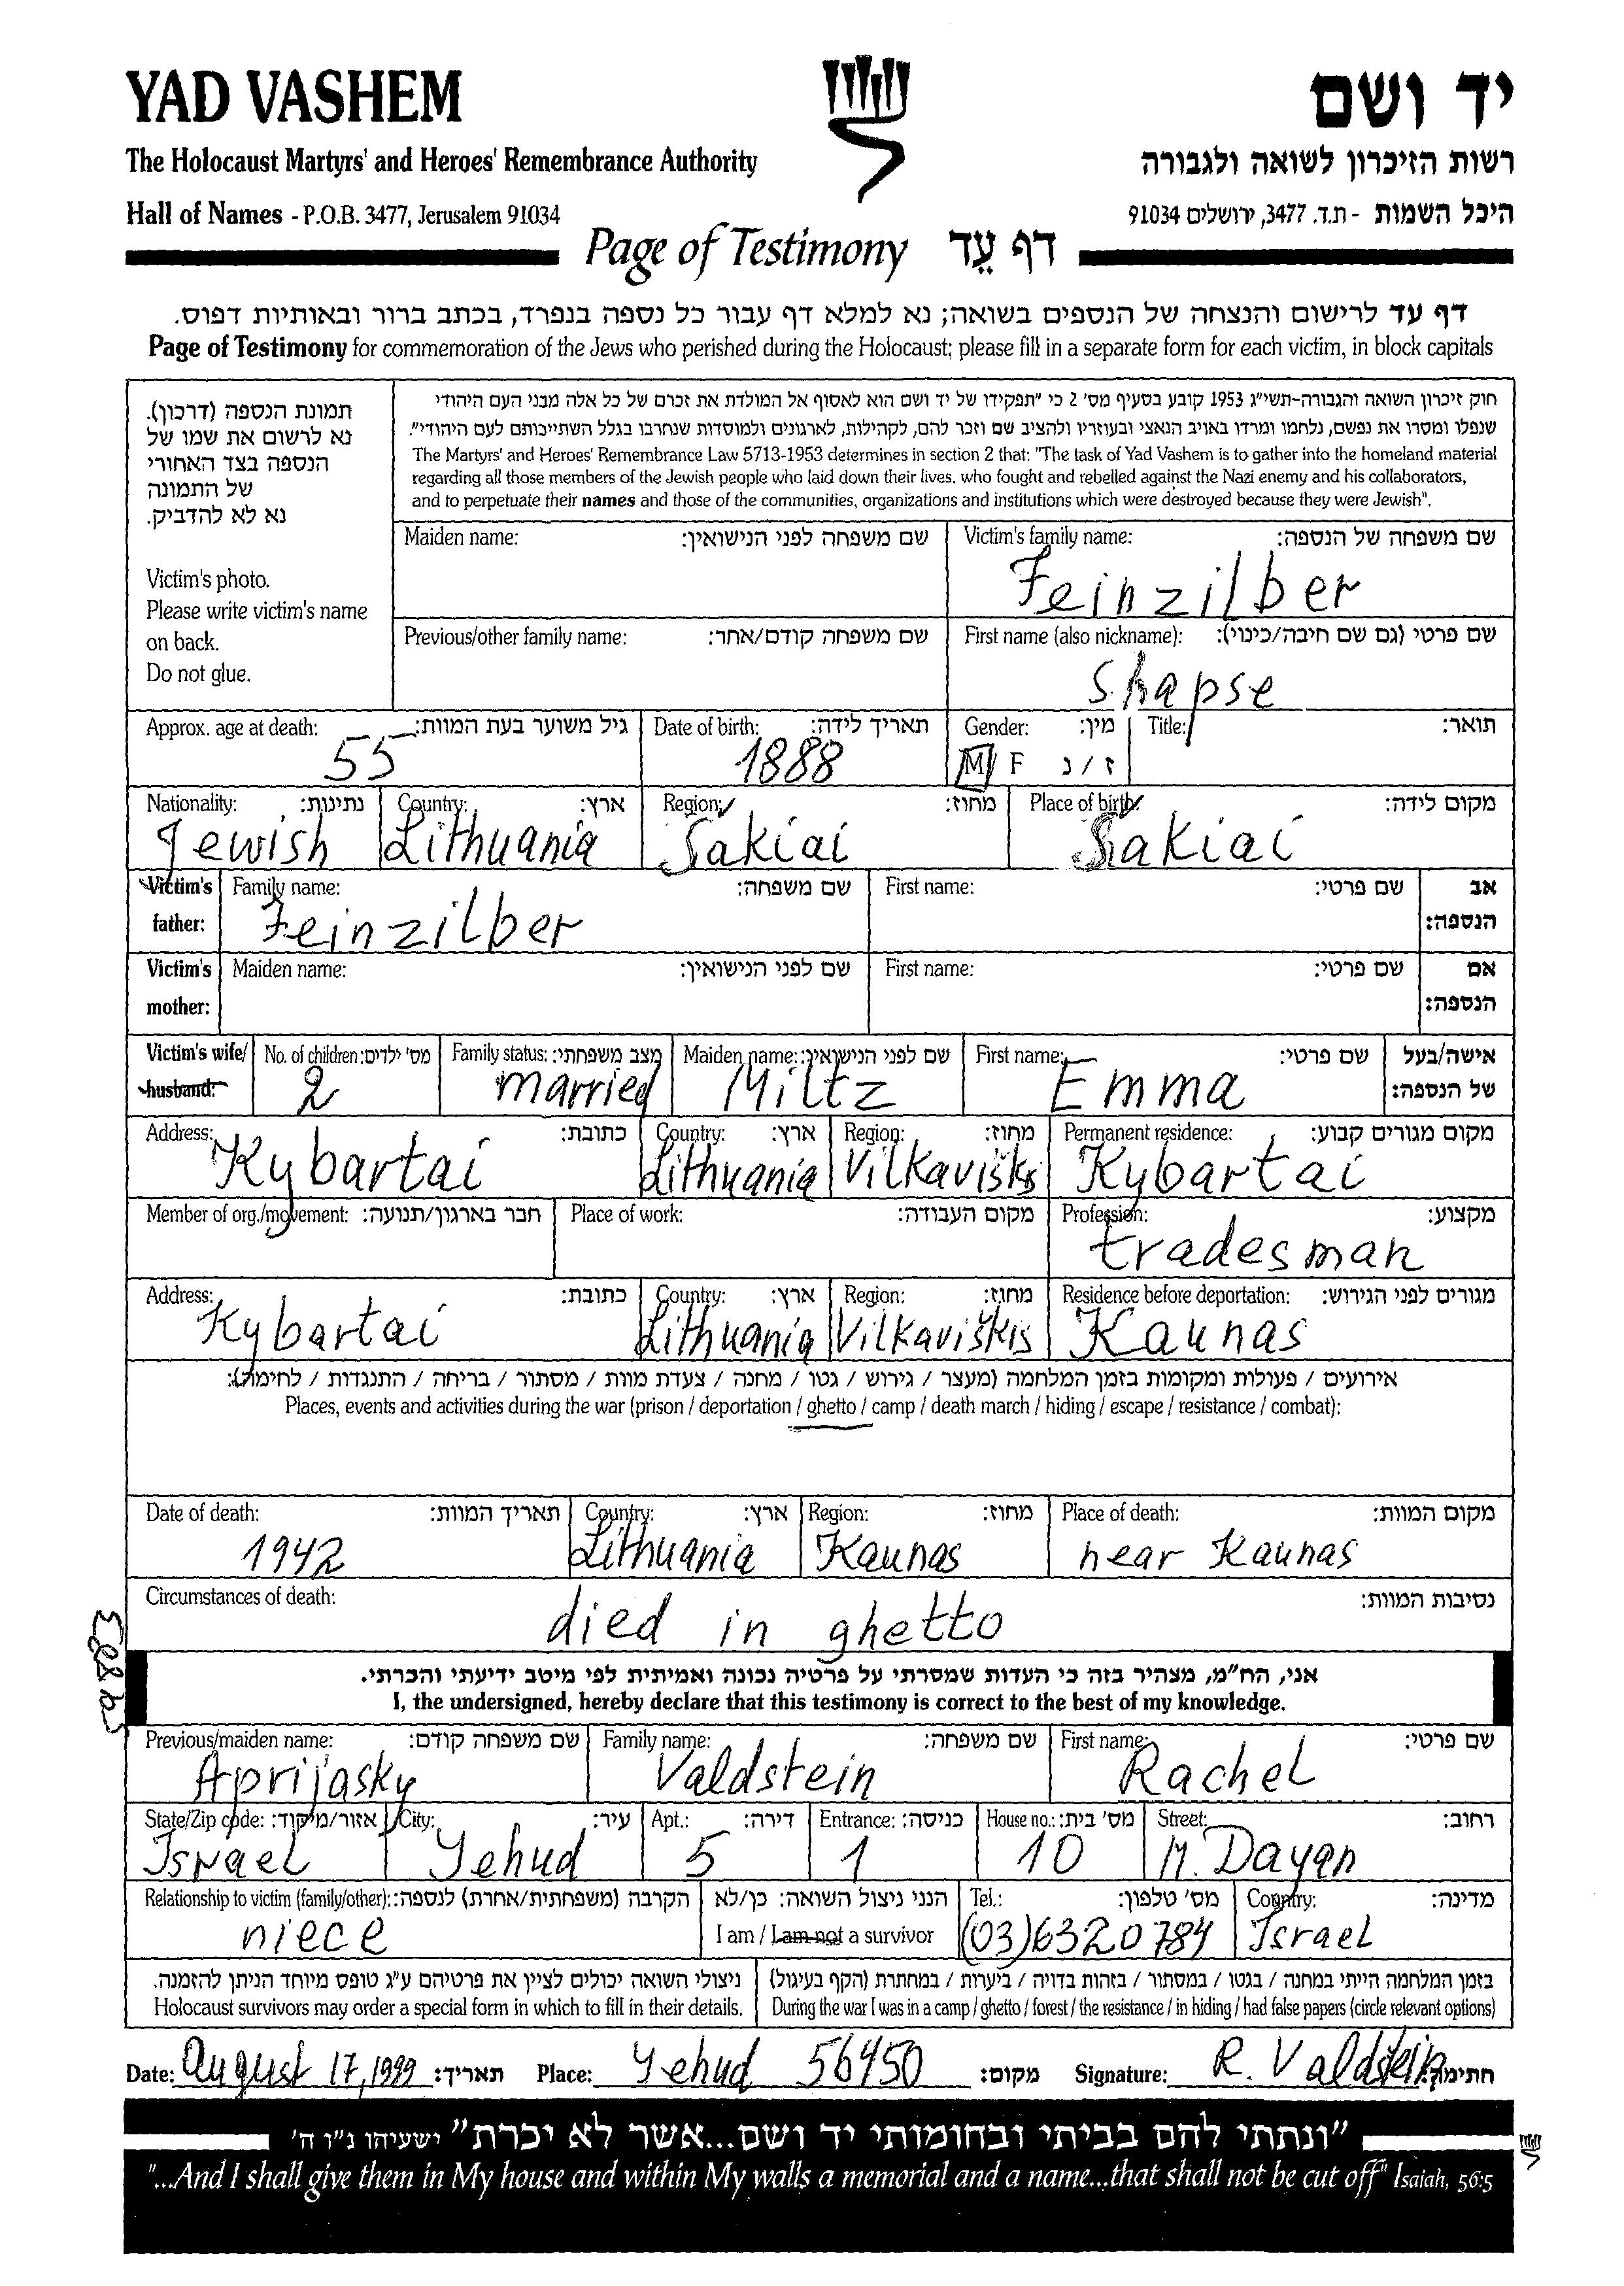 YAD VASHEM
יד ושם
The Holocaust Martyrs' and Heroes' Remembrance Authority
רשות הזיכרון לשואה ולגבורה
Hall of Names - P.O.B. 3477, Jerusalem 91034
היכל השמות - ת.ד. 3477, ירושלים 91034
Page of Testimony דף עֵד
דף עד לרישום והנצחה של הנספים בשואה; נא למלא דף עבור כל נספה בנפרד, בכתב ברור ובאותיות דפוס.
Page of Testimony for commemoration of the Jews who perished during the Holocaust; please fill in a separate form for each victim, in block capitals
תמונת הנספה (דרכון).
נא לרשום את שמו של
הנספה בצד האחורי
של התמונה
נא לא להדביק.
Victim's photo.
Please write victim's name
on back.
Do not glue.
חוק זיכרון השואה והגבורה-תשי"ג 1953 קובע בסעיף מס' 2 כי "תפקידו של יד ושם הוא לאסוף אל המולדת את זכרם של כל אלה מבני העם היהודי
שנפלו ומסרו את נפשם, נלחמו ומרדו באויב הנאצי ובעוזריו ולהציב שם וזכר להם, לקהילות, לארגונים ולמוסדות שנחרבו בגלל השתייכותם לעם היהודי".
The Martyrs' and Heroes' Remembrance Law 5713-1953 determines in section 2 that: "The task of Yad Vashem is to gather into the homeland material
regarding all those members of the Jewish people who laid down their lives, who fought and rebelled against the Nazi enemy and his collaborators,
and to perpetuate their names and those of the communities, organizations and institutions which were destroyed because they were Jewish".
Maiden name: שם משפחה לפני הנישואין:
Victim's family name: שם משפחה של הנספה:
Feinzilber
Previous/other family name: שם משפחה קודם/אחר:
First name (also nickname): שם פרטי (גם שם חיבה/כינוי):
Shapse
Approx. age at death: גיל משוער בעת המוות: Date of birth: תאריך לידה: Gender: מין: Title: תואר:
55 1888 M/ F ז / נ
Nationality: נתינות: Country: ארץ: Region: מחוז: Place of birth: מקום לידה:
Jewish Lithuania Šakiai Šakiai
Victim's father: Family name: שם משפחה: First name: שם פרטי: אב הנספה:
Feinzilber
Victim's mother: Maiden name: שם לפני הנישואין: First name: שם פרטי: אם הנספה:
Victim's wife/ husband: No. of children: מס' ילדים: Family status: מצב משפחתי: Maiden name: שם לפני הנישואין: First name: שם פרטי: אישה/בעל של הנספה:
2 married Miltz Emma
Address: כתובת: Country: ארץ: Region: מחוז: Permanent residence: מקום מגורים קבוע:
Kybartai Lithuania Vilkaviškis Kybartai
Member of org./movement: חבר בארגון/תנועה: Place of work: מקום העבודה: Profession: מקצוע:
tradesman
Address: כתובת: Country: ארץ: Region: מחוז: Residence before deportation: מגורים לפני הגירוש:
Kybartai Lithuania Vilkaviškis Kaunas
אירועים / פעולות ומקומות בזמן המלחמה (מעצר / גירוש / גטו / מחנה / צעדת מוות / מסתור / בריחה / התנגדות / לחימה):
Places, events and activities during the war (prison / deportation / ghetto / camp / death march / hiding / escape / resistance / combat):
Date of death: תאריך המוות: Country: ארץ: Region: מחוז: Place of death: מקום המוות:
1942 Lithuania Kaunas near Kaunas
Circumstances of death: נסיבות המוות:
died in ghetto
אני, הח"מ, מצהיר בזה כי העדות שמסרתי על פרטיה נכונה ואמיתית לפי מיטב ידיעתי והכרתי.
I, the undersigned, hereby declare that this testimony is correct to the best of my knowledge.
Previous/maiden name: שם משפחה קודם: Family name: שם משפחה: First name: שם פרטי:
Aprijasky Valdstein Rachel
State/Zip code: אזור/מיקוד: City: עיר: Apt.: דירה: Entrance: כניסה: House no.: מס' בית: Street: רחוב:
Israel Yehud 5 1 10 M. Dayan
Relationship to victim (family/other): הקרבה (משפחתית/אחרת) לנספה: הנני ניצול השואה: כן/לא Tel.: מס' טלפון: Country: מדינה:
niece I am / I am not a survivor (03)6320784 Israel
ניצולי השואה יכולים לציין את פרטיהם ע"ג טופס מיוחד הניתן להזמנה.
Holocaust survivors may order a special form in which to fill in their details.
בזמן המלחמה הייתי במחנה / בגטו / במסתור / בזהות בדויה / ביערות / במחתרת (הקף בעיגול)
During the war I was in a camp / ghetto / forest / the resistance / in hiding / had false papers (circle relevant options)
Date: August 17, 1999 תאריך: Place: Yehud 56450 מקום: Signature: R. Valdstein חתימה:
"ונתתי להם בביתי ובחומותי יד ושם...אשר לא יכרת" ישעיהו נ"ו ה'
"...And I shall give them in My house and within My walls a memorial and a name...that shall not be cut off" Isaiah, 56:5